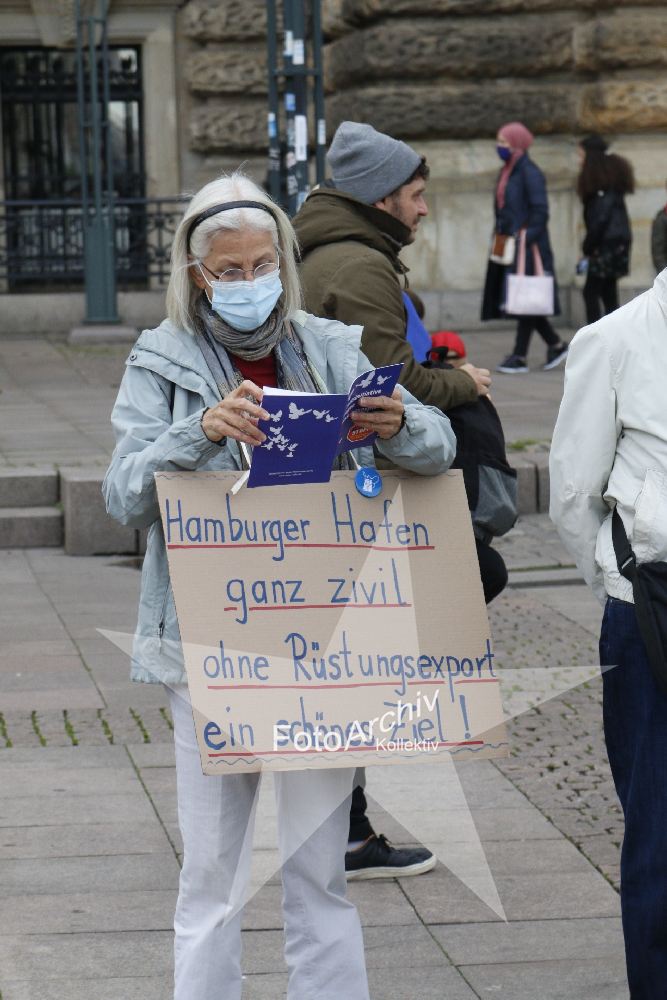 Hamburger Hafen
ganz zivil
ohne Rüstungsexport
ein schönes Ziel!
FotoArchiv
Kollektiv